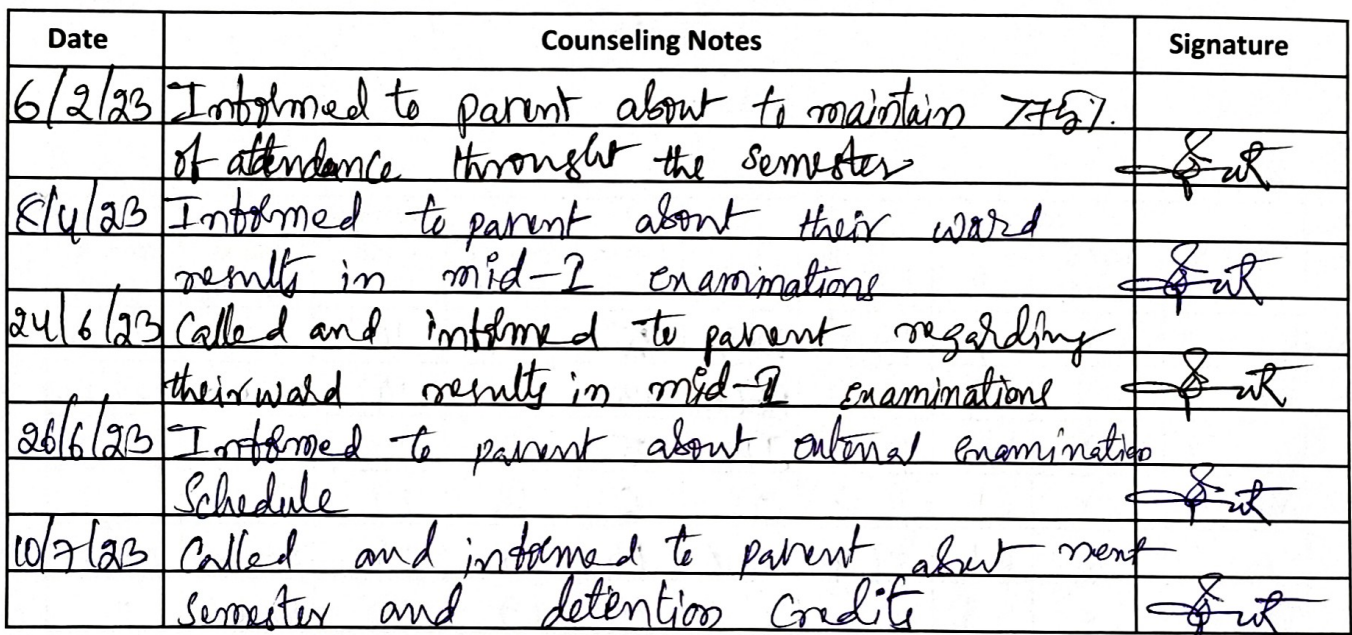 Date Counseling Notes Signature
6/2/23 Informed to parent about to maintain >75%.
of attendance throught the semester
8/4/23 Informed to parent about their ward
results in mid-I examinations
24/6/23 Called and informed to parent regarding
their ward results in mid-II examinations
26/6/23 Informed to parent about external examination
Schedule
10/7/23 Called and informed to parent about next
semester and detention credits